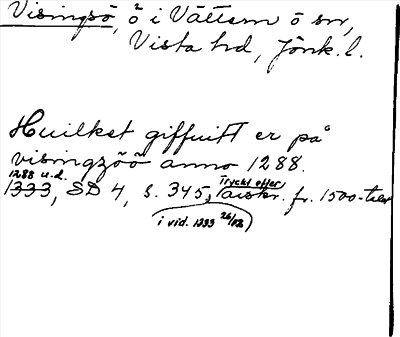 Visingsö, ö i Vättern ö sn,
Vista hd, Jönk. l.
Huilket giffuitt er på
visingzöö anno 1288.
1288 u.d.
1333, SD 4, s. 345, avskr. fr. 1500-talet
Tryckt efter
i vid. 1333 26/12)